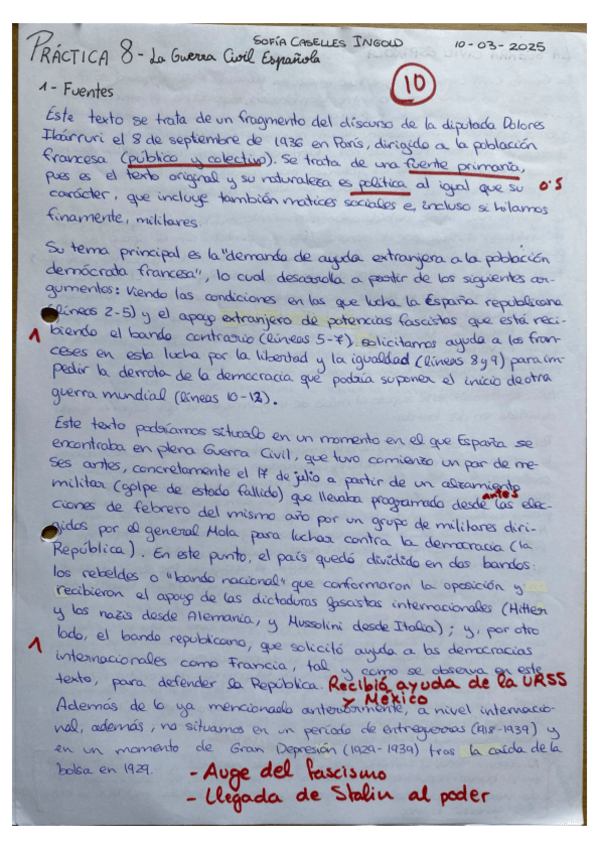 SOFÍA CASELLES INGOLD 10-03-2025
PRÁCTICA 8 - La Guerra Civil Española
10
1- Fuentes
Este texto se trata de un fragmento del discurso de la diputada Dolores
Ibárruri el 8 de septiembre de 1936 en París, dirigido a la población
francesa (público y colectivo). Se trata de una fuente primaria,
pues es el texto original y su naturaleza es política al igual que su 0.5
carácter, que incluye también matices sociales e, incluso si hilamos
finamente, militares.
Su tema principal es la "demanda de ayuda extranjera a la población
demócrata francesa", lo cual desarrolla a partir de los siguientes ar-
gumentos: Viendo las condiciones en las que lucha la España republicana
(líneas 2-5) y el apoyo extranjero de potencias fascistas que está reci-
1 biendo el bando contrario (líneas 5-7), solicitamos ayuda a los fran-
ceses en esta lucha por la libertad y la igualdad (líneas 8 y 9) para im-
pedir la derrota de la democracia que podría suponer el inicio de otra
guerra mundial (líneas 10-12).
Este texto podríamos situarlo en un momento en el que España se
encontraba en plena Guerra Civil, que tuvo comienzo un par de me-
ses antes, concretamente el 17 de julio a partir de un alzamiento
militar (golpe de estado fallido) que llevaba programado desde antes las elec-
ciones de febrero del mismo año por un grupo de militares diri-
gidos por el general Mola para luchar contra la democracia (la
República). En este punto, el país quedó dividido en dos bandos:
los rebeldes o "bando nacional" que conformaron la oposición y
recibieron el apoyo de las dictaduras fascistas internacionales (Hitler
y los nazis desde Alemania, y Mussolini desde Italia); y, por otro
1 lado, el bando republicano, que solicitó ayuda a las democracias
internacionales como Francia, tal y como se observa en este
texto, para defender la República. Recibió ayuda de la URSS
y México
Además de lo ya mencionado anteriormente, a nivel internacio-
nal, además, no situamos en un período de entreguerras (1918-1939) y
en un momento de Gran Depresión (1929-1939) tras la caída de la
bolsa en 1929.
- Auge del fascismo
- Llegada de Stalin al poder